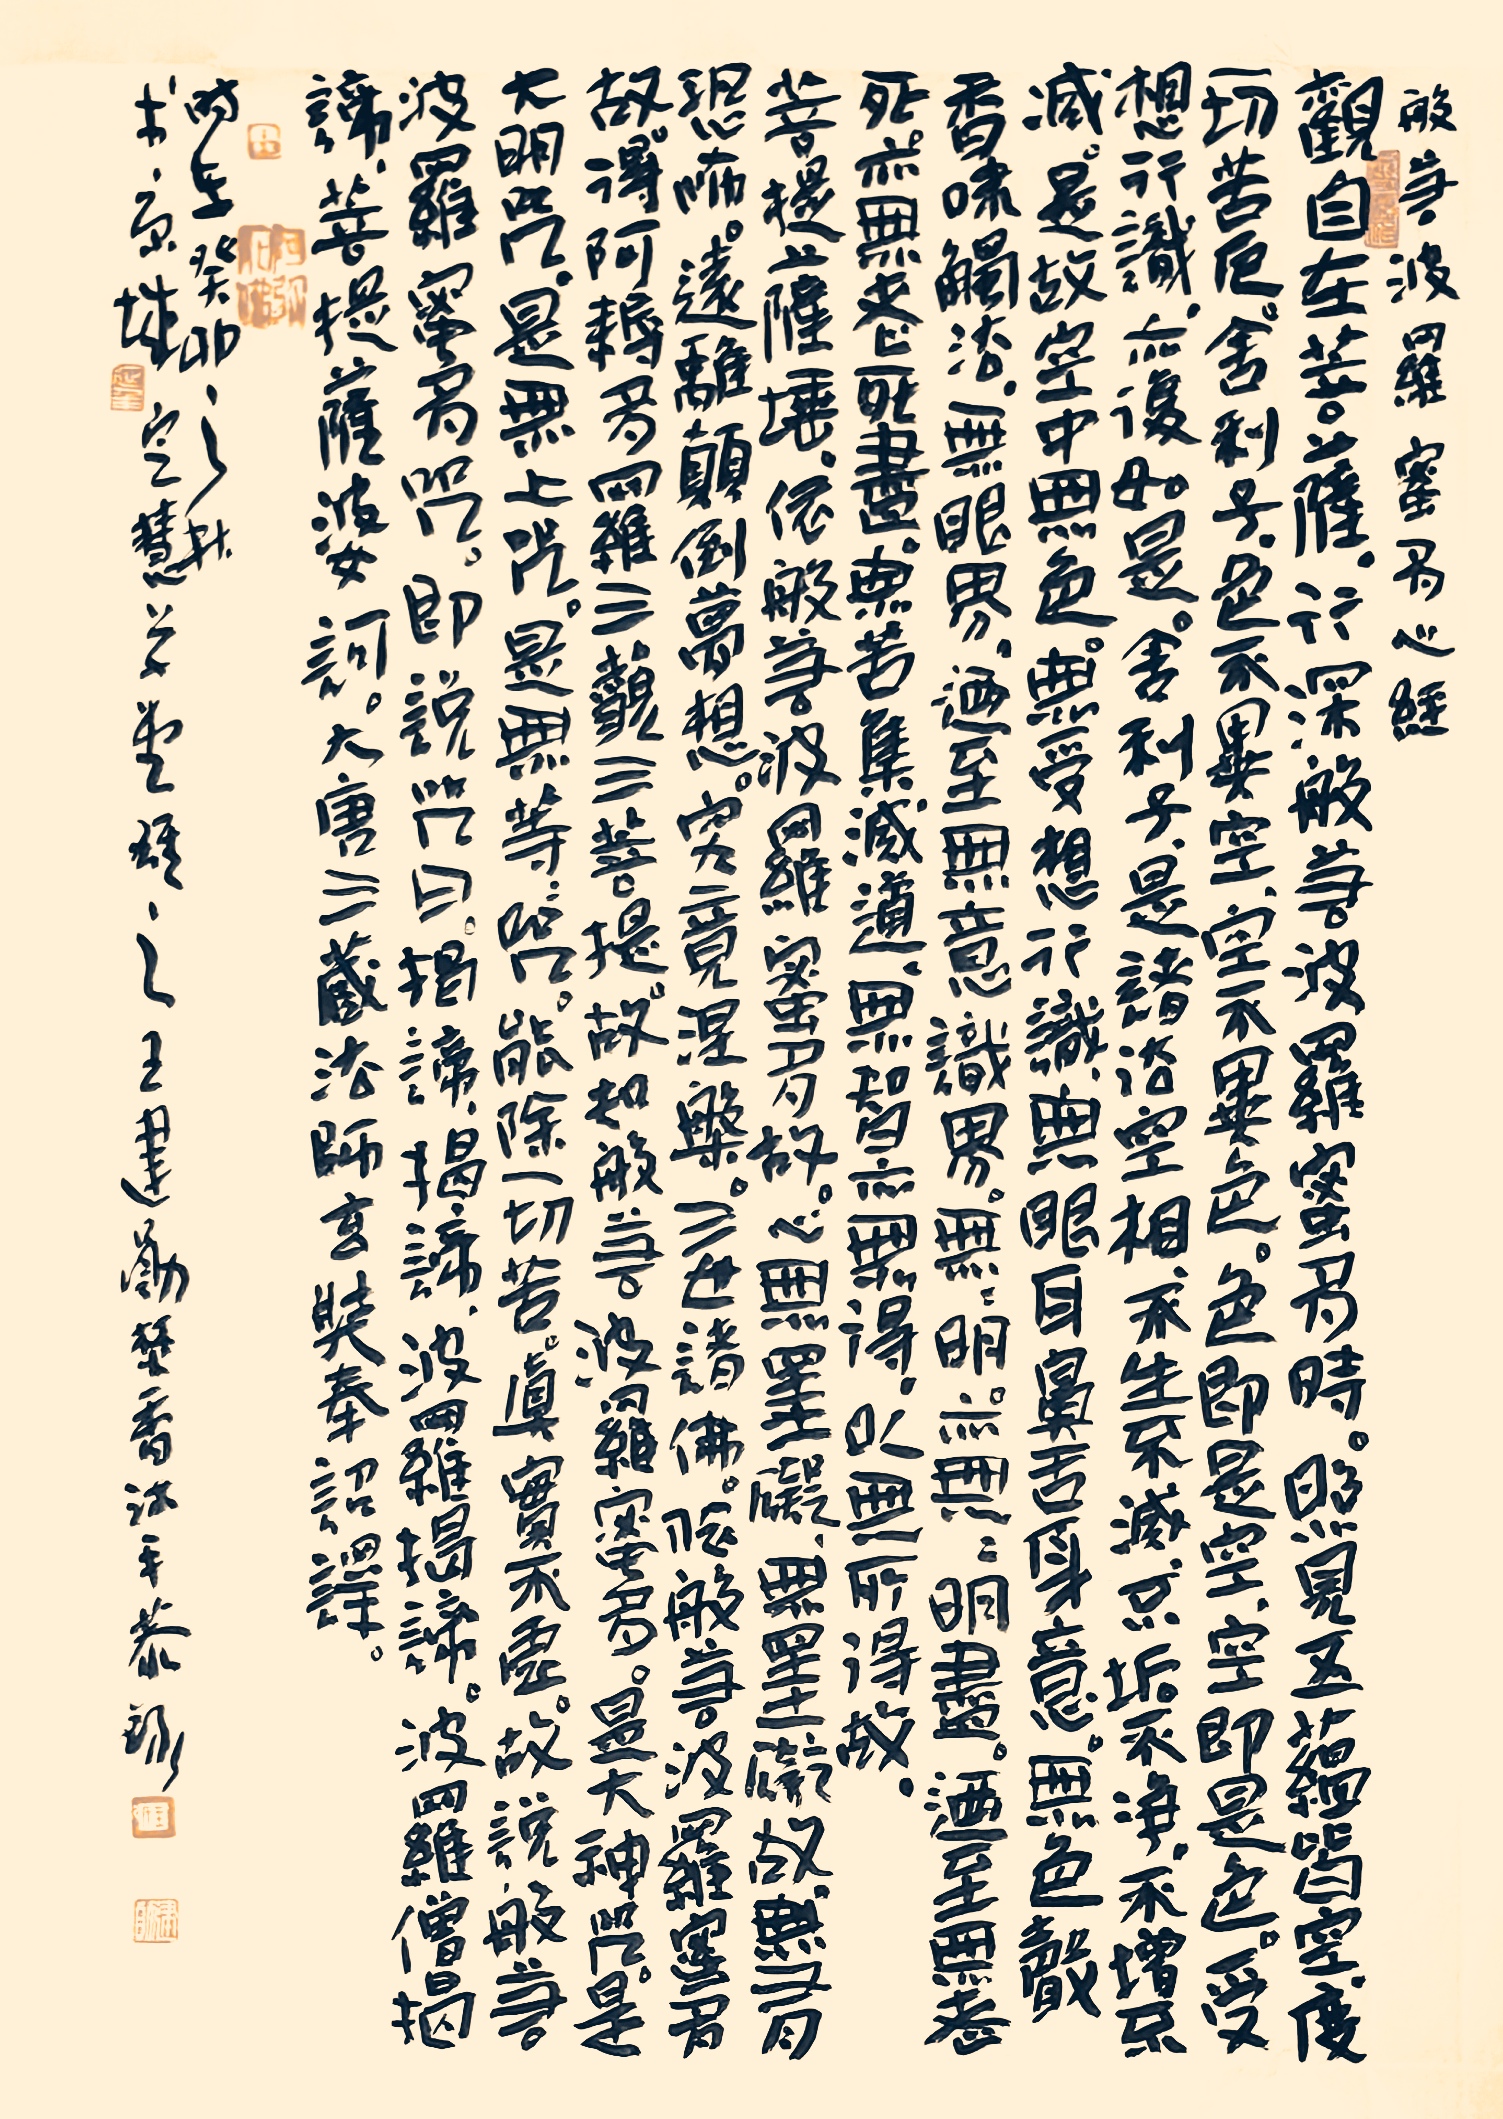 般若波羅蜜多心經
觀自在菩薩、行深般若波羅蜜多時。照見五蘊皆空、度
一切苦厄。舍利子、色不異空、空不異色。色即是空、空即是色。受
想行識、亦復如是。舍利子、是諸法空相、不生不滅、不垢不淨、不增不
減。是故空中無色。無受想行識、無眼耳鼻舌身意。無色聲
香味觸法、無眼界、迺至無意識界。無〻明亦無〻明盡。迺至無老
死、亦無老死盡、無苦集滅道、無智亦無得、以無所得故、
菩提薩埵、依般若波羅蜜多故。心無罣礙、無罣礙故、無有
恐怖。遠離顛倒夢想。究竟涅槃。三世諸佛。依般若波羅蜜多
故。得阿耨多羅三藐三菩提。故知般若波羅蜜多。是大神咒。是
大明咒。是無上咒。是無等〻咒。能除一切苦。真實不虛。故說般若
波羅蜜多咒。即說咒曰。揭諦、揭諦、波羅揭諦。波羅僧揭
諦、菩提薩婆訶。大唐三藏法師玄奘奉詔譯。
時在癸卯之秋
京城定慧堂之王建勤焚香沐手恭錄